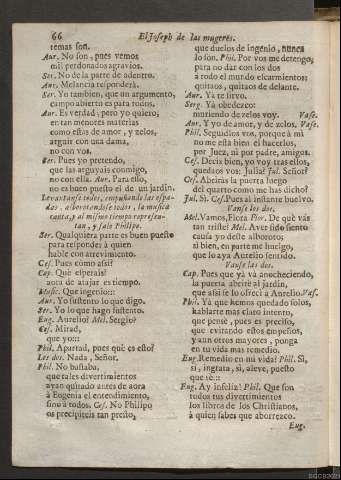 66
El Joseph de las mugeres.
temas son.
Aur. No son, pues vemos
mil perdonados agravios.
Ser. No de la parte de adentro.
Aur. Melancia responderà.
Ser. Yo tambien, que un argumento,
campo abierto es para todos.
Aur. Es verdad, pero yo quiero,
en tan menores materias
como estas de amor, y zelos,
arguir con una dama,
no con vos.
Ser. Pues yo pretendo,
que las arguyais conmigo,
no con ella. Aur. Para ello,
no es buen puesto el de un jardin.
Levantanse todos, empuñando las espa-
das, alborotandose todos, la musica
canta, y al mismo tiempo represen-
tan, y sale Philipo.
Ser. Qualquiera parte es buen puesto
para responder à quien
hable con atrevimiento.
Ces. Pues còmo assi?
Cap. Què esperais?
aora de atajar es tiempo.
Music. Que ingenio:::
Aur. Yo sustento lo que digo.
Ser. Yo lo que hago sustento.
Eug. Aurelio? Mel. Sergio?
Ces. Mirad,
que yo:::
Phil. Apartad, pues què es esto?
Los dos. Nada, Señor.
Phil. No bastaba,
que tales divertimientos
ayan quitado antes de aora
à Eugenia el entendimiento,
sino à todos. Ces. No Philipo
os precipiteis tan presto,
que duelos de ingenio, nunca
lo son. Phil. Por vos me detengo,
para no dar con los dos
à todo el mundo escarmientos;
quitaos, quitaos de delante.
Aur. Yà te sirvo.
Serg. Yà obedezco:
muriendo de zelos voy. Vase.
Aur. Y yo de amor, y de zelos. Vase.
Phil. Seguidlos vos, porque à mi
no me està bien el hacerlos,
por Juez, ni por padre, amigos.
Ces. Decis bien, yo voy tras ellos,
quedaos vos: Julia? Jul. Señor?
Ces. Abriràs la puerta luego
del quarto como me has dicho?
Jul. Si. Ces. Pues al instante buelvo.
Vanse los dos.
Mel. Vamos, Flora. Flor. De què vàs
tan triste? Mel. Aver sido siento
causa yo deste alboroto;
si bien, en parte me huelgo,
que lo aya Aurelio sentido.
Vanse las dos.
Cap. Pues que yà và anocheciendo,
la puerta abrirè al jardin,
que assi se lo ofrecì à Aurelio. Vas.
Phil. Yà que hemos quedado solos,
hablarte mas claro intento,
que pensè, pues es preciso,
que evitando estos empeños,
y aun otros mayores, ponga
en tu vida mas remedio.
Eug. Remedio en mi vida? Phil. Si,
si, ingrata, si, aleve, puesto
que tè:::
Eug. Ay infeliz! Phil. Que son
todos tus divertimientos
los libros de los Christianos,
à quien sabes que aborrezco.
Eug.